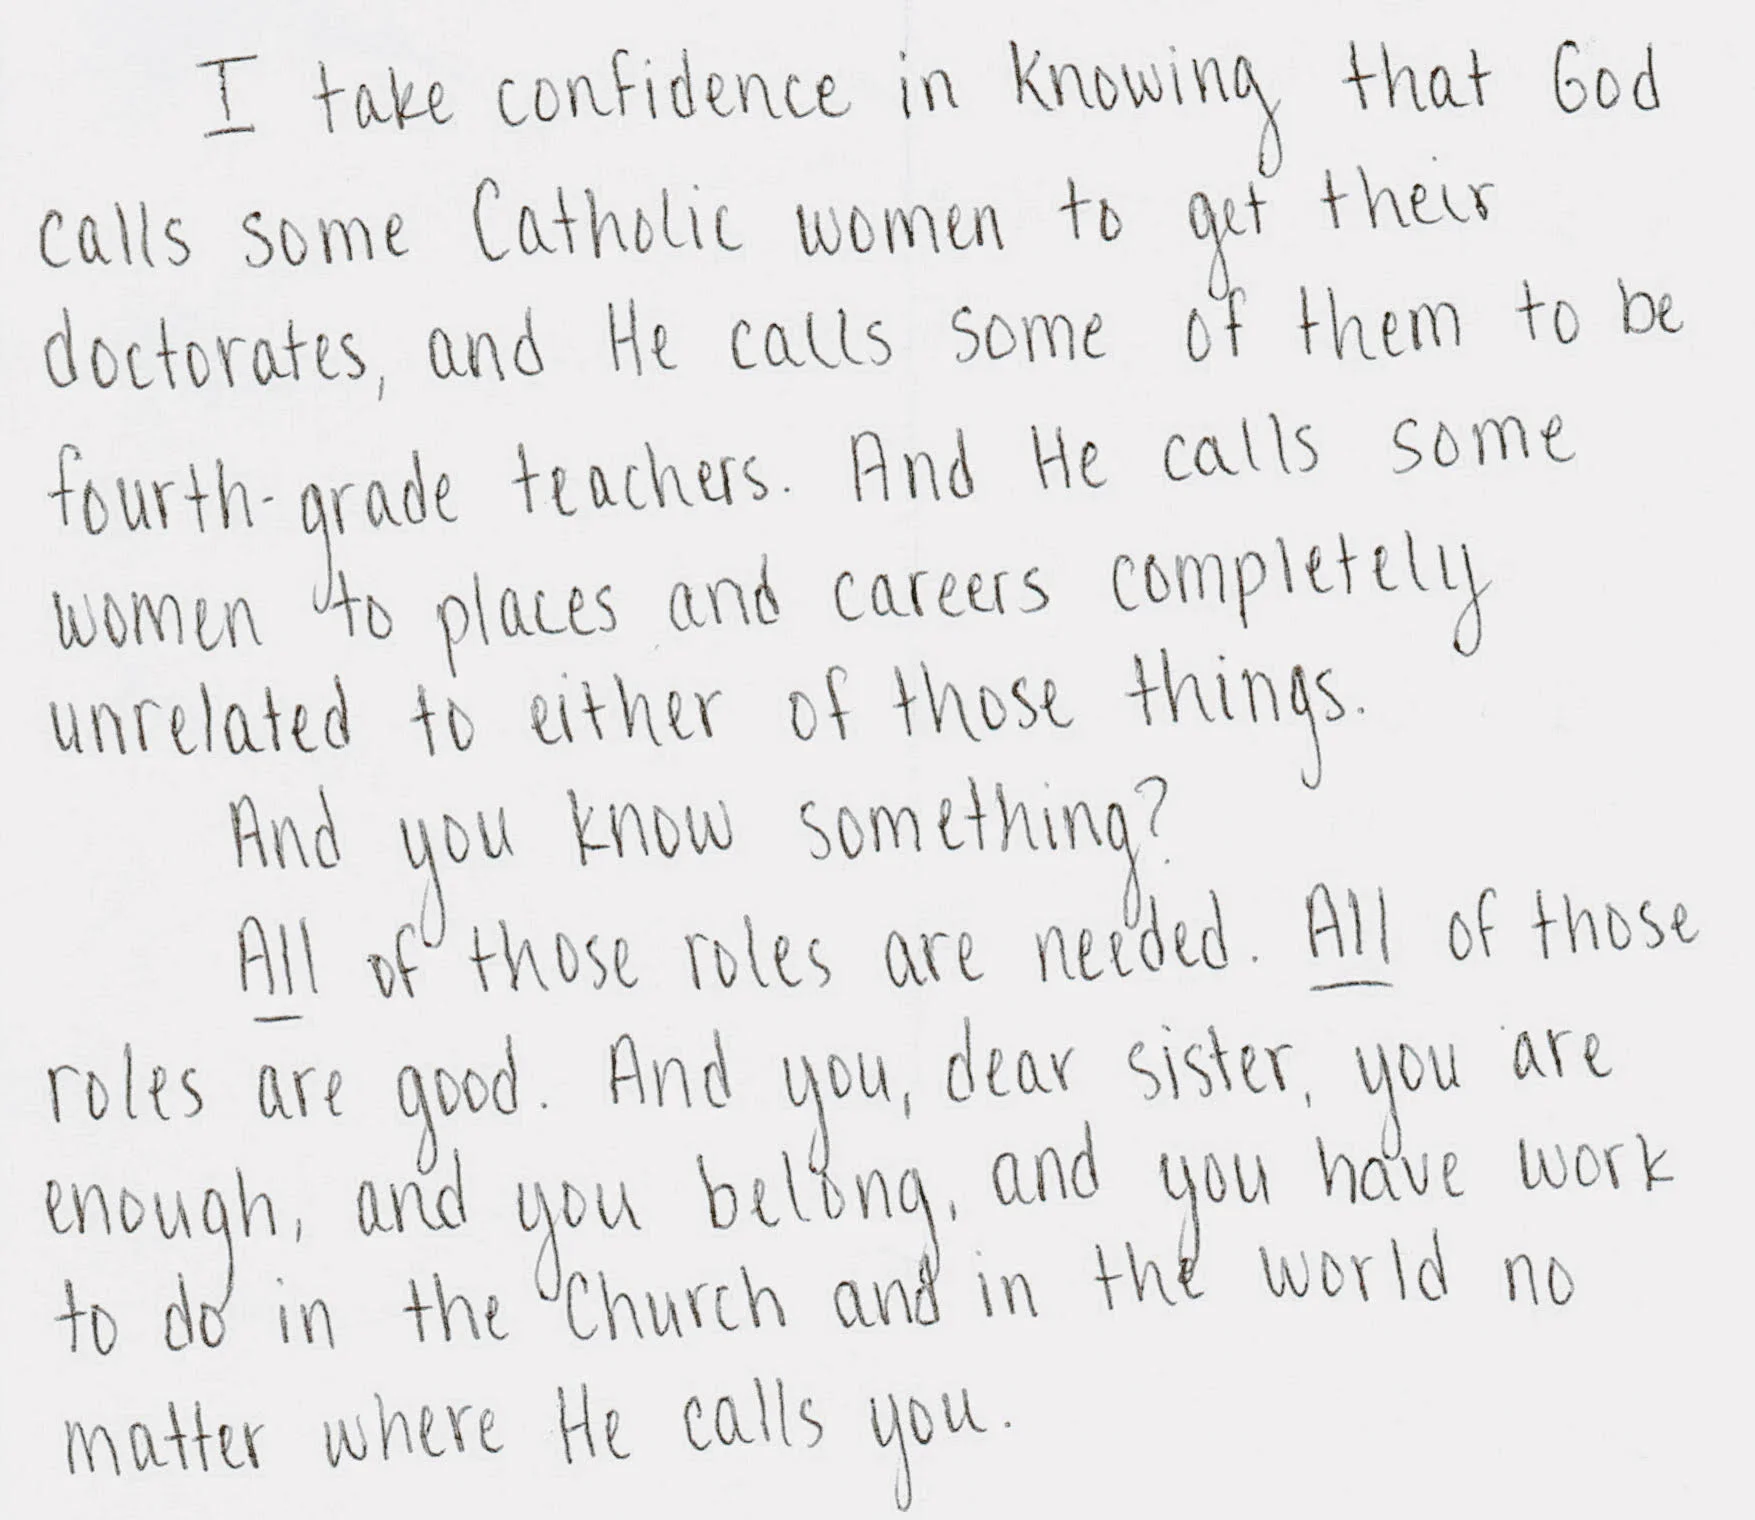 I take confidence in knowing that God
calls some Catholic women to get their
doctorates, and He calls some of them to be
fourth-grade teachers. And He calls some
women to places and careers completely
unrelated to either of those things.
And you know something?
All of those roles are needed. All of those
roles are good. And you, dear sister, you are
enough, and you belong, and you have work
to do in the Church and in the world no
matter where He calls you.